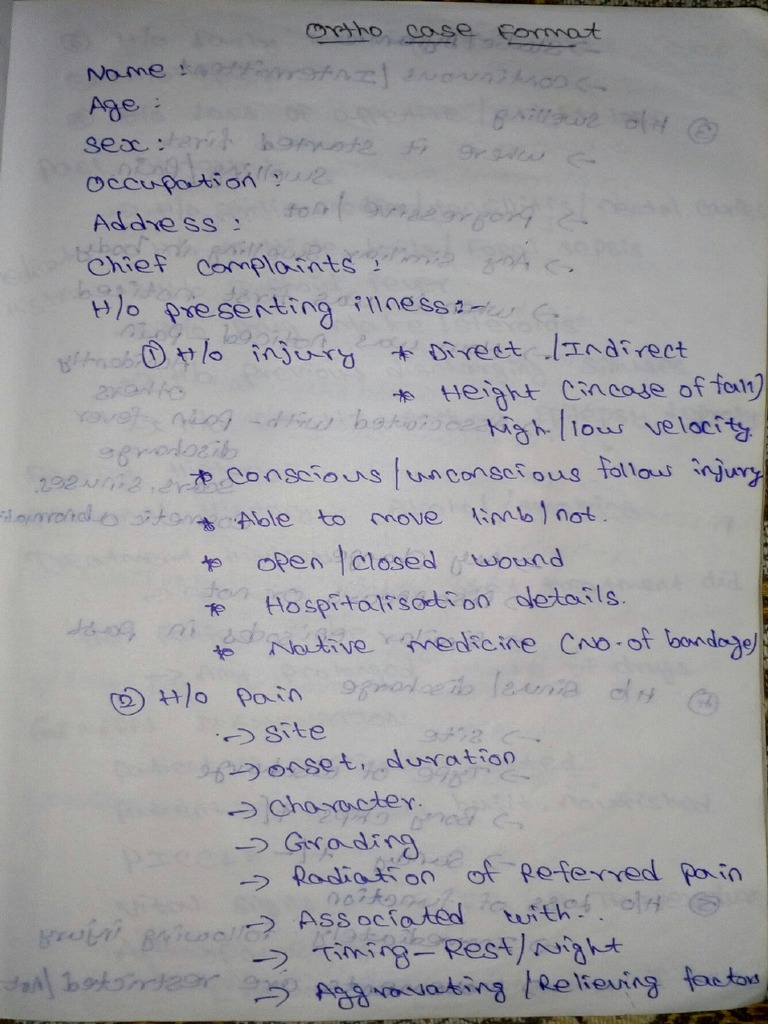 Ortho case Format
Name :
Age :
Sex :
Occupation :
Address :
Chief complaints :
H/o presenting illness :-
① H/o injury * Direct / Indirect
* Height (incase of fall)
high / low velocity.
* conscious / unconscious follow injury
* Able to move limb / not.
* open / closed wound
* Hospitalisation details.
* Native medicine (no. of bandage)
② H/o pain
→ site
→ onset, duration
→ character.
→ Grading
→ Radiation of Referred pain
→ Associated with..
→ Timing - Rest / Night
→ Aggravating / Relieving factors